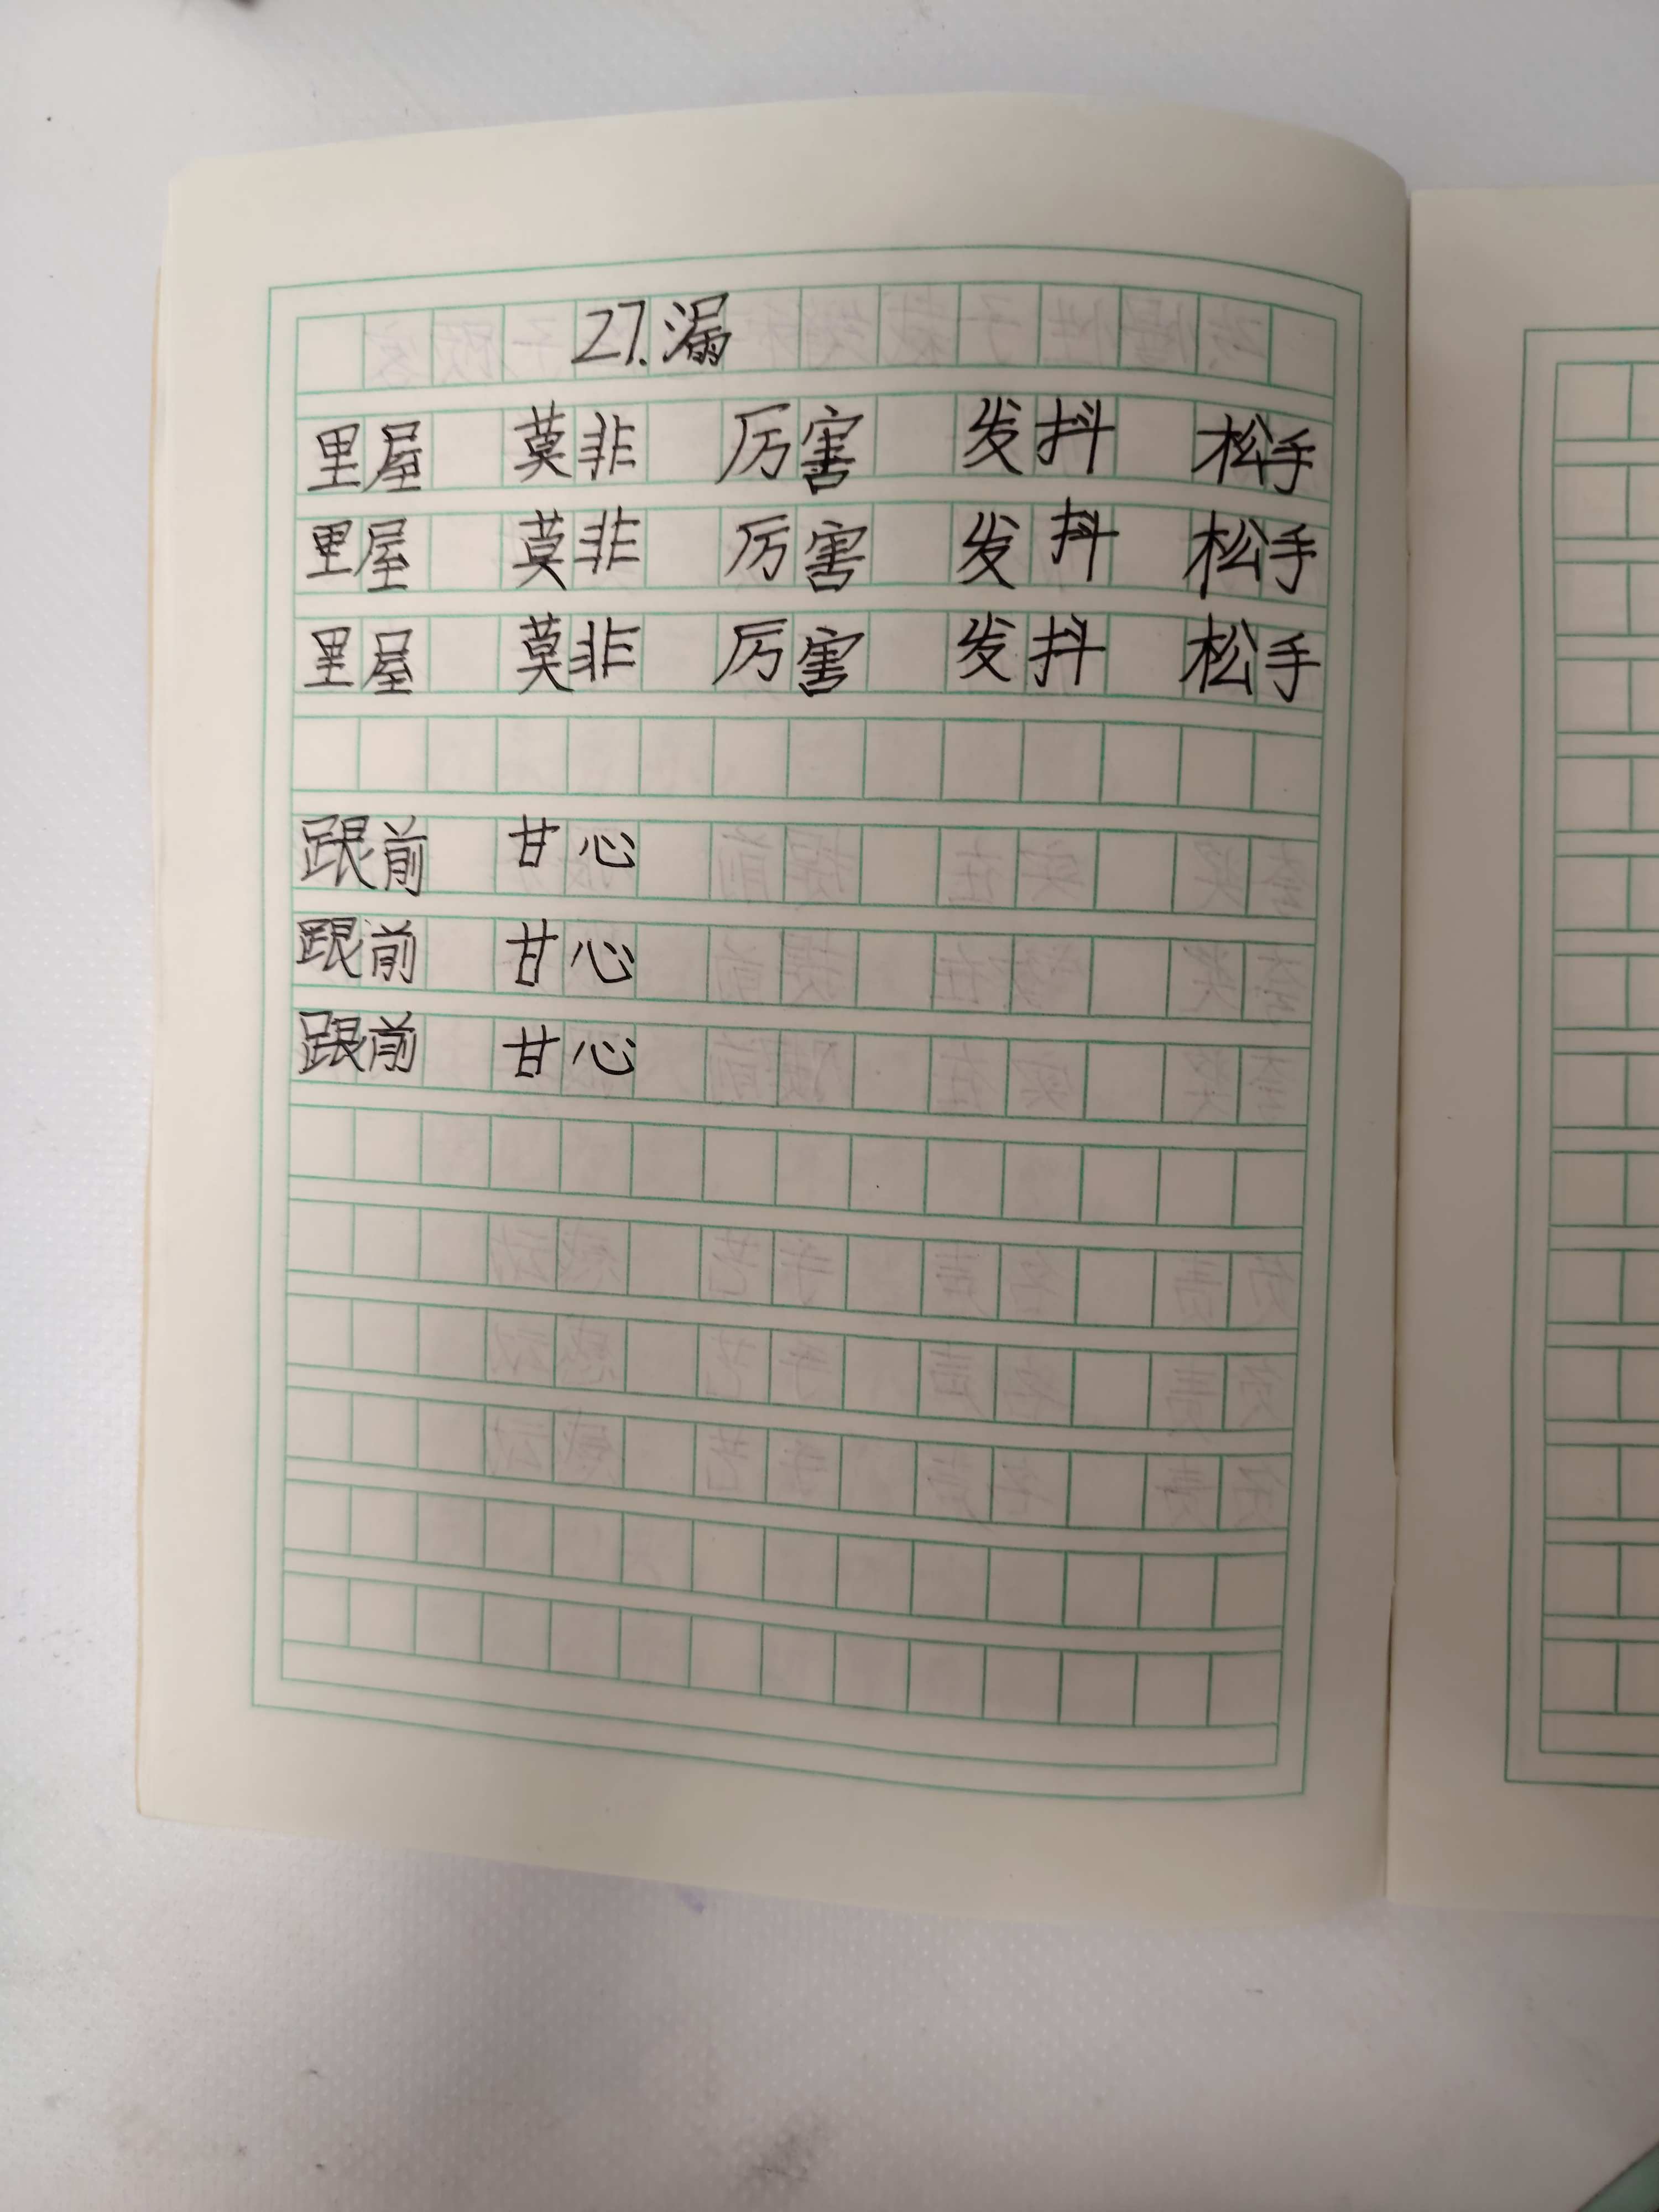 27.漏
里屋 莫非 厉害 发抖 松手
里屋 莫非 厉害 发抖 松手
里屋 莫非 厉害 发抖 松手
跟前 甘心
跟前 甘心
跟前 甘心